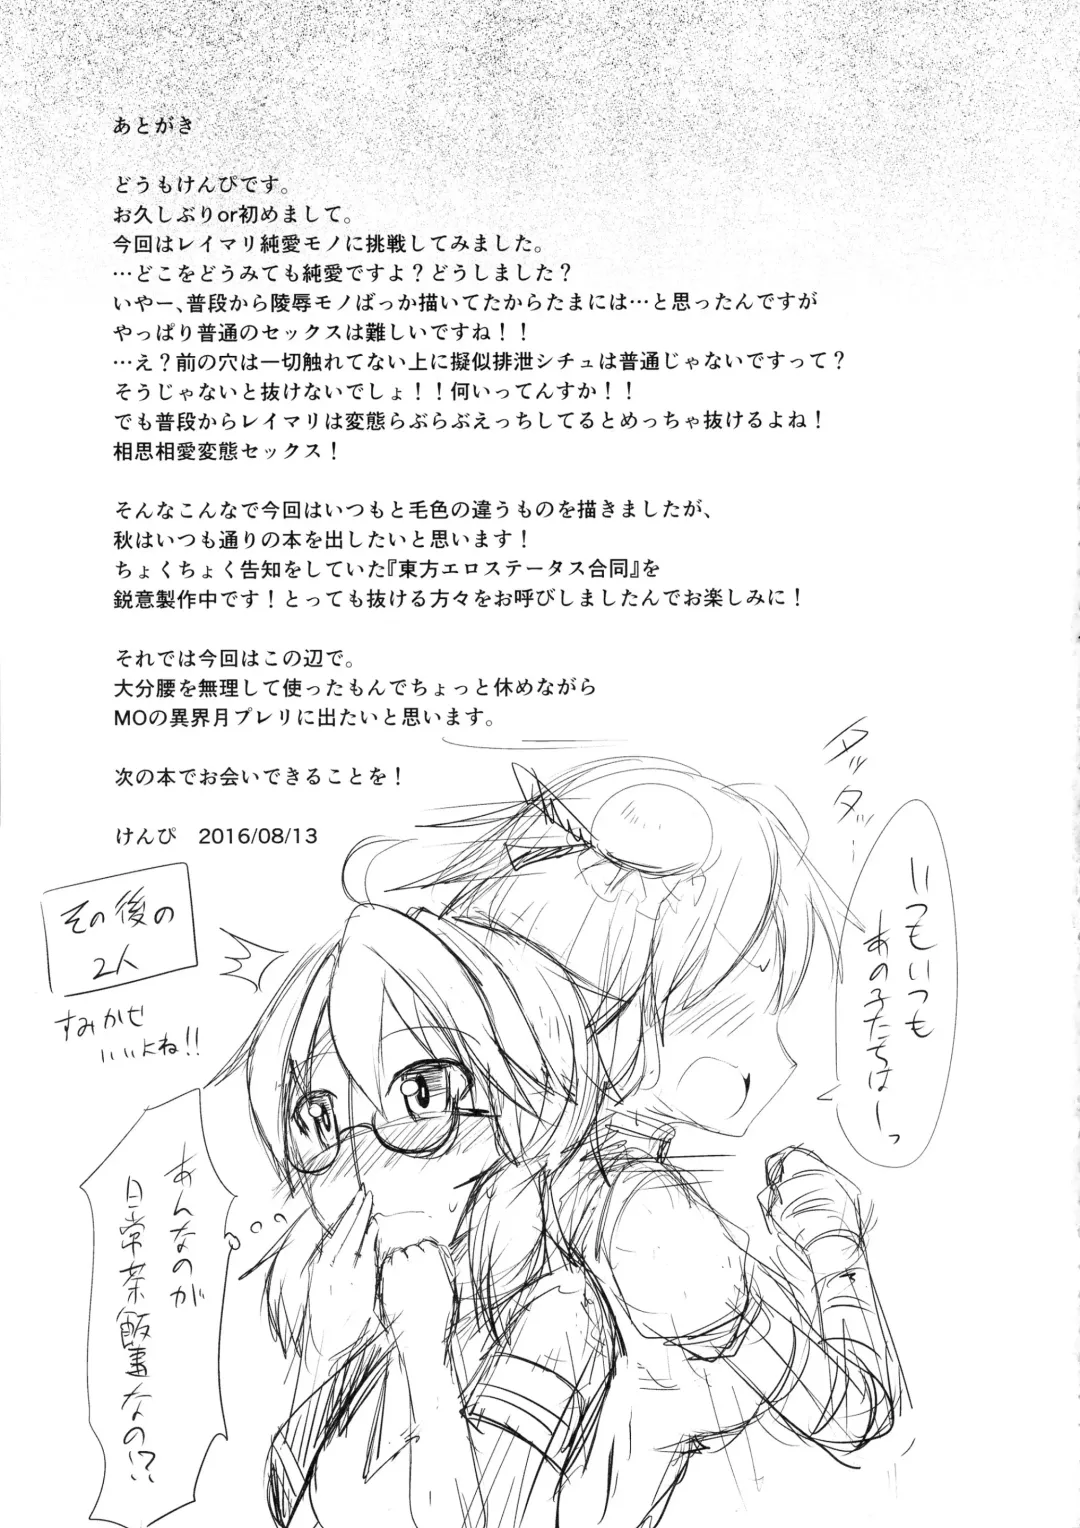 あとがき
どうもけんぴです。
お久しぶりor初めまして。
今回はレイマリ純愛モノに挑戦してみました。
…どこをどうみても純愛ですよ？どうしました？
いやー、普段から陵辱モノばっか描いてたからたまには…と思ったんですが
やっぱり普通のセックスは難しいですね！！
…え？前の穴は一切触れてない上に擬似排泄シチュは普通じゃないですって？
そうじゃないと抜けないでしょ！！何いってんすか！！
でも普段からレイマリは変態らぶらぶえっちしてるとめっちゃ抜けるよね！
相思相愛変態セックス！
そんなこんなで今回はいつもと毛色の違うものを描きましたが、
秋はいつも通りの本を出したいと思います！
ちょくちょく告知をしていた『東方エロステータス合同』を
鋭意製作中です！とっても抜ける方々をお呼びしましたんでお楽しみに！
それでは今回はこの辺で。
大分腰を無理して使ったもんでちょっと休めながら
MOの異界月プレリに出たいと思います。
次の本でお会いできることを！
けんぴ　2016/08/13
その後の
2人
すみかせ
いいよね!!
クッ
タッ…
いつもいつも
あの子たちはーっ
あんなのが
日常茶飯事なの!?